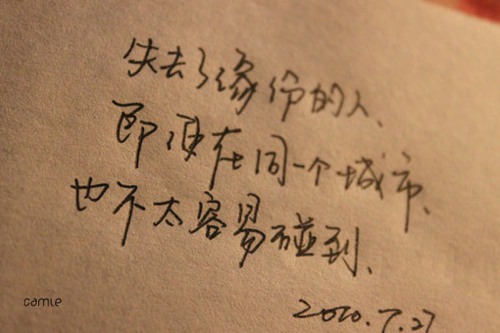 失去了缘份的人、
即便在同一个城市、
也不太容易碰到、
2010.7.27
camie